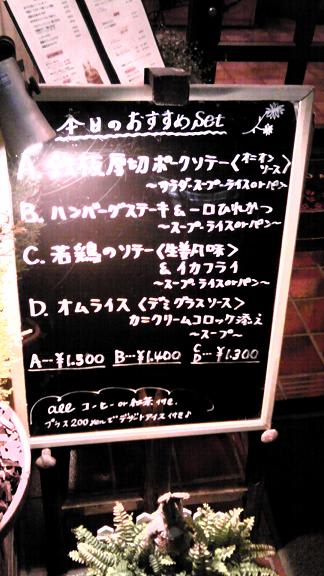 本日のおすすめSet
A. 鉄板厚切ポークソテー〈オニオンソース〉
〜サラダ・スープ・ライスorパン
B. ハンバーグステーキ & 一口ひれかつ
〜スープ・ライスorパン〜
C. 若鶏のソテー〈生姜風味〉
& イカフライ
〜スープ・ライスorパン〜
D. オムライス〈デミグラスソース〉
カニクリームコロッケ添え
〜スープ〜
A…¥1.500 B…¥1.400 C D…¥1.300
all コーヒー or 紅茶付き.
プラス200yenでデザートアイス付き♪